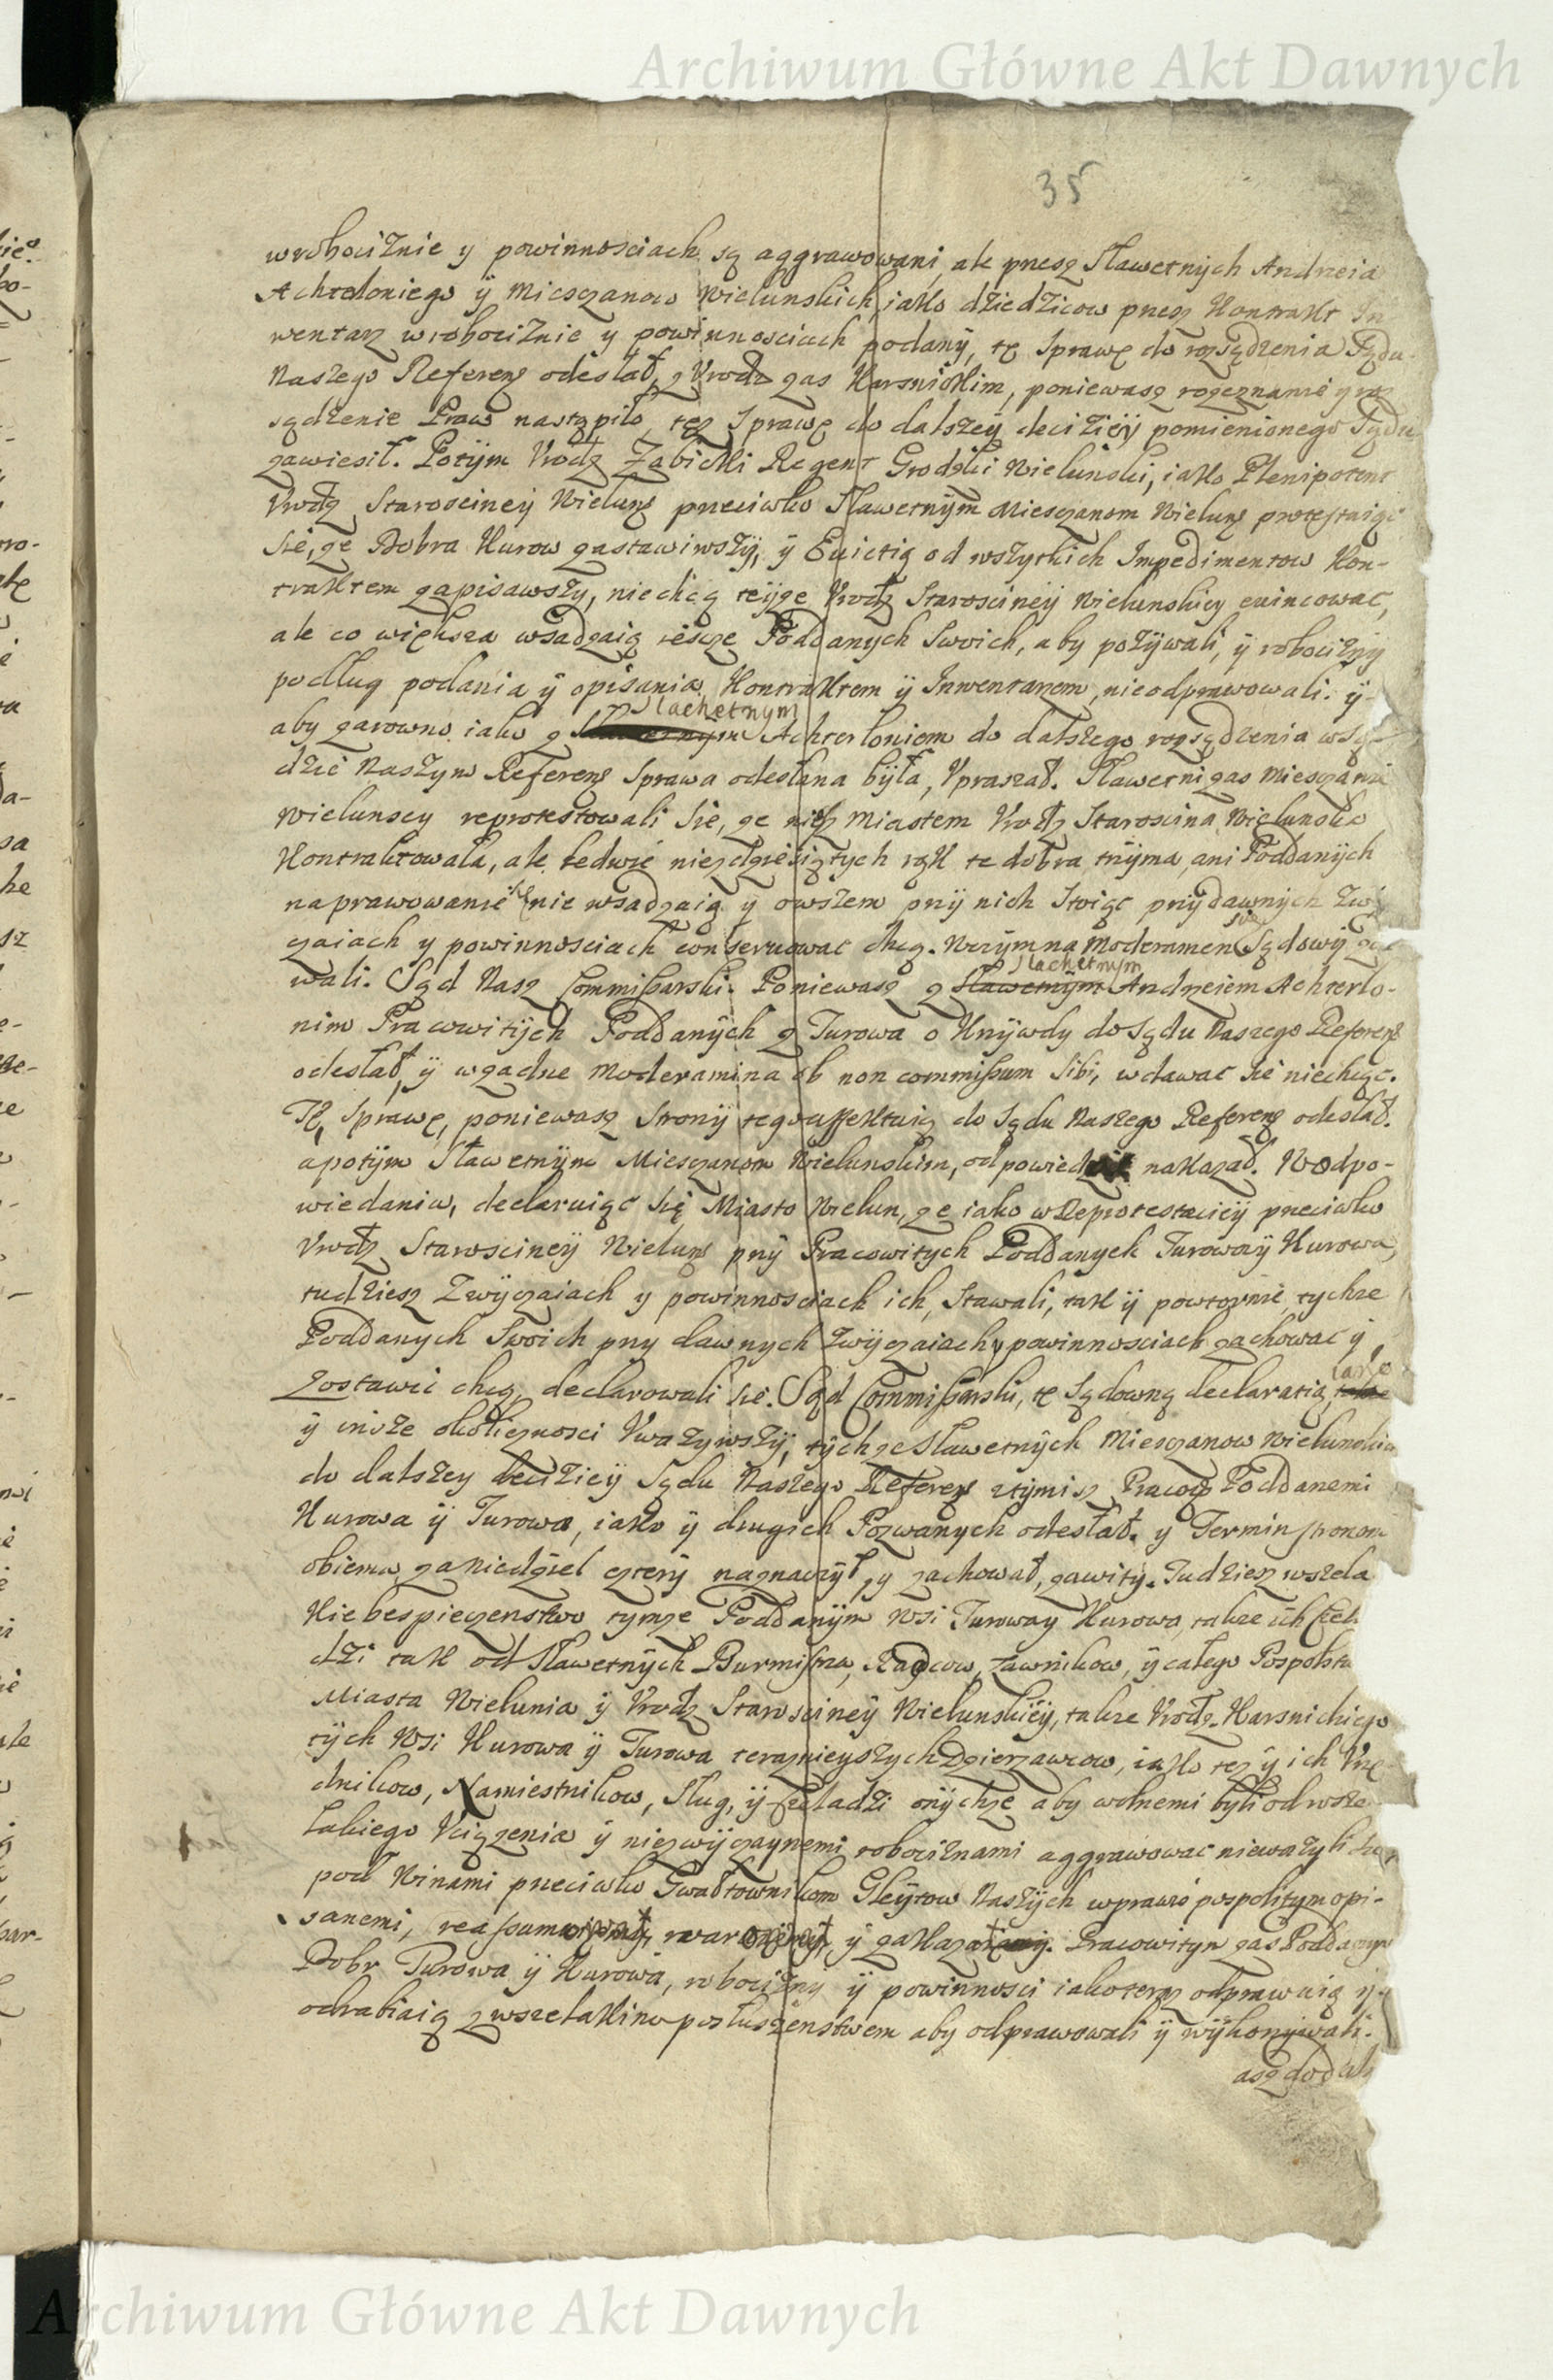 Archiwum Główne Akt Dawnych
35
wrobociznie y powinnosciach są aggrawowani, ale przesz Sławetnych Andrzeia
Achteloniego ÿ Miesczanow Wielunskich, iako dziedzicow przesz Kontrakt In
wentarz wrobociznie y powinnosciach podanÿ, tę Sprawę do rozsądzenia Sądu
Naszego Referens odesłał, z Vrodz zas Karsnickim, poniewasz rozeznanie y roz
sądzenie Praw nastąpiło, tesz Sprawę do dalszeÿ deciziÿ pomienionego Sądu
zawiesił. Potÿm Vrodz Zabicki Regent Grodzki Wielunski, iako Plenipotent
Vrodz Starosciney Wieluns przeciwko Sławetnÿm Miesczanom Wieluns protestuiąc
sie, ze Dobra Kurow zastawiwszÿ, ÿ Euictią od wszytkich Impedimentow Kon-
traktem zapisawszy, niechcą teÿze Vrodz Starosciney Wielunskiey euincowac,
ale co większa wsadzaią iescze Poddanych Swoich, aby pozÿwali, ÿ robociznÿ
podług podania ÿ opisania Kontraktem ÿ Inwentarzem, nieodprawowali. ÿ
Slachetnym
aby zarowno iako z Achterloniem do dalszego rozsądzenia wSą
dzie Naszym Referens Sprawa odesłana bÿła, Vpraszał. Sławetni zas Miesczanie
Wielunscy reprotestowali sie, ze niesz Miastem Vrodz Staroscina Wielunska
Kontraktowała, ale ledwie niezdziesiątych rąk te dobra trzÿma, ani Poddanÿch
naprawowanie się nie wsadzaią y owszem przÿ nich Stoiąc przÿ dawnych Zwÿ
czaiach y powinnosciach conseruowac chcą. Wczÿm na Moderamen Sądowÿ
Slachetnym
wali. Sąd Nasz Commissarski. Poniewasz z Sławetnÿm Andrzeiem Achterlo-
nim Pracowitÿch Poddanÿch z Turowa o Krzÿwdy do Sądu Naszego Referens
odesłał, ÿ wzadne Moderamina ob non commissum sibi, wdawac sie niechcąc.
Tę, Sprawę, poniewasz Stronÿ tego affektuią do Sądu Naszego Referens odesłał.
apotÿm Sławetnÿm Miesczanom Wielunskim, odpowiedz nakazał. Wodpo-
wiedaniu, declaruiąc Się Miasto Wielun, ze iako wReprotestaciÿ przeciwko
Vrodz Starosciney Wieluns przÿ Pracowitych Poddanych Turowa ÿ Kurowa,
tudziesz Zwÿczaiach y powinnosciach ich, Stawali, tak ÿ powtornie tychze
Poddanych Swoich przy dawnych Zwÿczaiach y powinnosciach zachowac ÿ
zostawic chcą, declarowali sie. Sąd Commissarski, tę Sądowną declaratią, iako
ÿ insze okolicznosci Vwazywszÿ, tÿchze Sławetnÿch Miesczanow Wielunskich
do dalszey deciziey Sądu Naszego Referens ztÿmisz Pracow Poddanemi
Kurowa ÿ Turowa, iako ÿ drugich Pozwanych odesłał. y Termin stronom
obiema zaniedziel czterÿ naznaczÿł, y zachował, zawitÿ. Tudziesz wszela
kie bespieczenstwo tymze Poddanÿm Wsi Turowa y Kurowa, takze ich Czela
dzi tak od Sławetnÿch Burmistrza, Radcow, Ławnikow, ÿ całego Pospolstwa
Miasta Wielunia ÿ Vrodz Starosciney Wielunskiey, takze Vrodz Karsnickiego
tÿch Wsi Kurowa ÿ Turowa teraznieyszych Dzierzawcow, iako tez ÿ ich Vrzę-
dnikow, Namiestnikow, Sług, ÿ Czeladzi onÿchze aby wolnemi byli od wsze
lakiego Vciązenia ÿ niezwÿczaynemi robociznami aggrawowac niewazyli sie
pod Winami przeciwko Gwałtownikom Gleÿtow Naszÿch wprawie pospolitym opi-
sanemi, y zakazał. Pracowitym zas Poddanym
Dobr Turowa ÿ Kurowa, robocizny ÿ powinnosci iako teraz odprawuią ÿ
odrabiaią z wszelakim posłuszenstwem aby odprawowali ÿ wÿkonÿwali.
asz do dals
Archiwum Główne Akt Dawnych